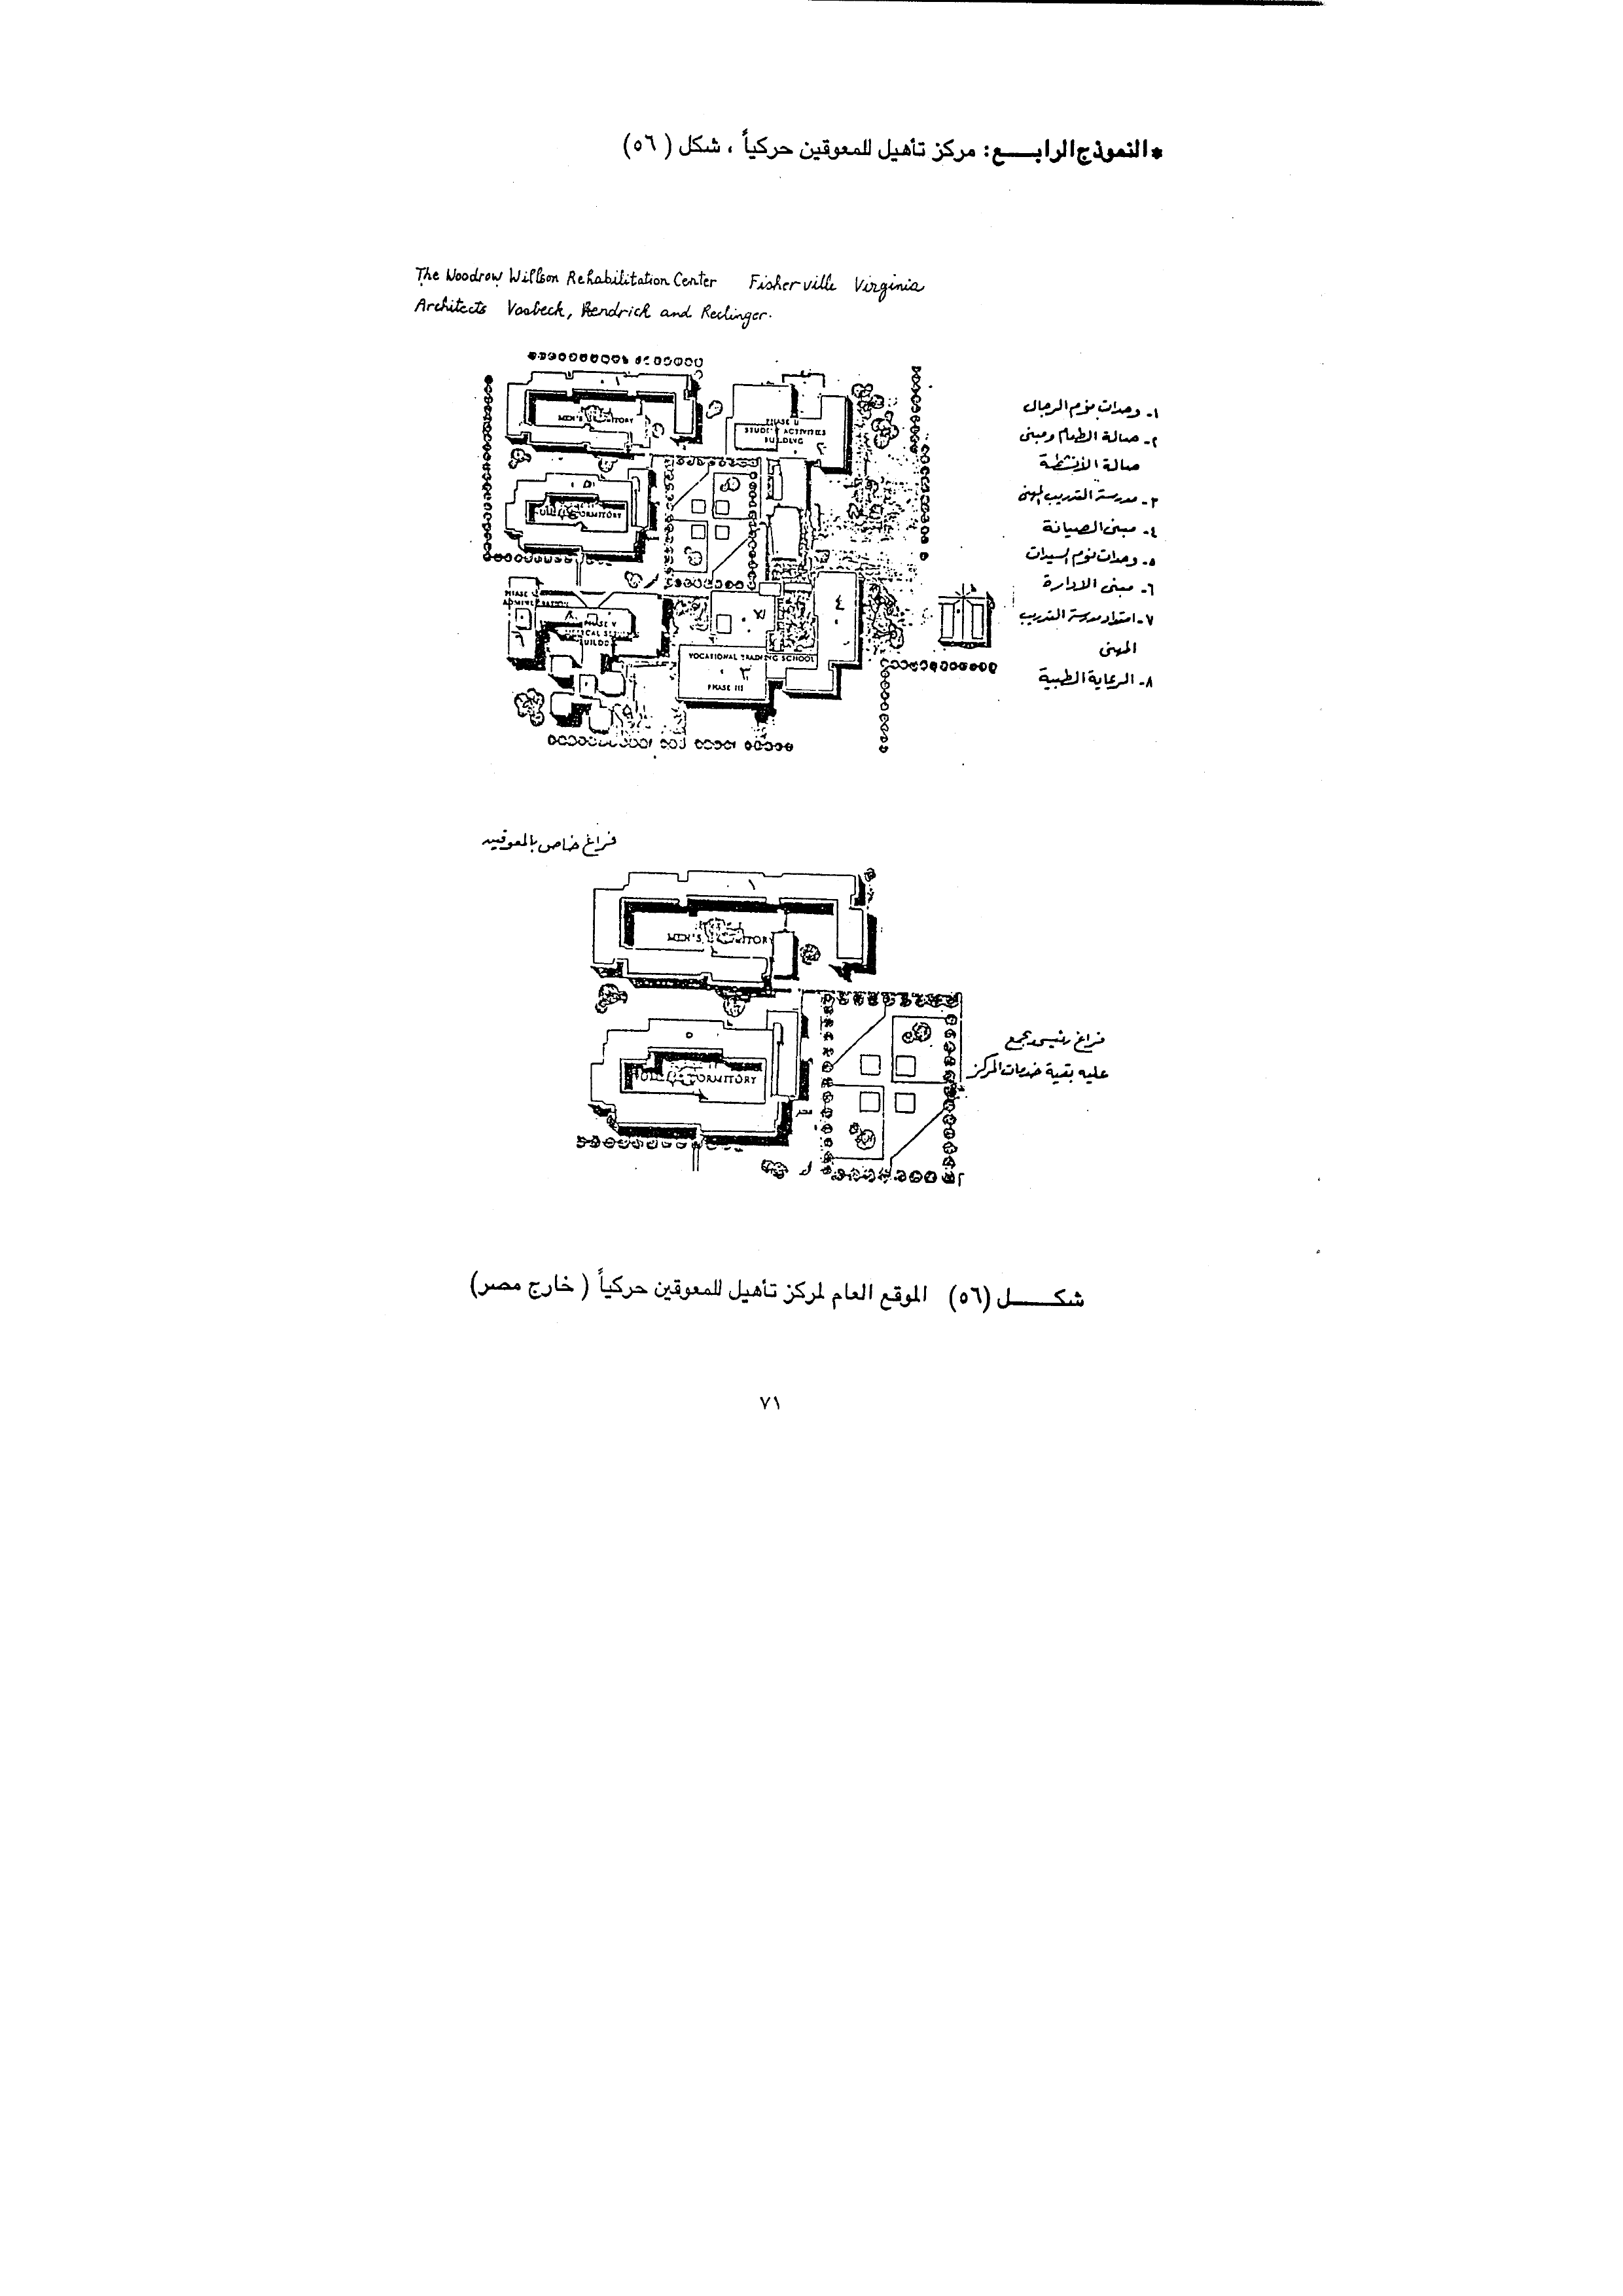 * النموذج الرابـــع: مركز تأهيل للمعوقين حركياً ، شكل ( ٥٦)
The Woodrow Willson Rehabilitation Center Fisherville Virginia
Architects Vosbeck, Kendrick and Redinger.
١
MEN'S
PHASE II
STUDENT ACTIVITIES
BUILDING
٢
٥
DORMITORY
ADMINISTRATION
٦
٨
PHASE V
٧
٤
VOCATIONAL TRAINING SCHOOL
٣
PHASE III
١- وحدات نوم الرجال
٢- صالة الطعام ومبنى
صالة الأنشطة
٣- مدرسة التدريب المهنى
٤- مبنى الصيانة
٥- وحدات نوم السيدات
٦- مبنى الادارة
٧- امتداد مدرسة التدريب
المهنى
٨- الرعاية الطبية
فراغ خاص بالمعوقين
١
MEN'S
٥
DORMITORY
فراغ رئيسى تجمع
عليه بقية خدمات المركز
شكـــــل (٥٦) الموقع العام لمركز تأهيل للمعوقين حركياً ( خارج مصر)
٧١